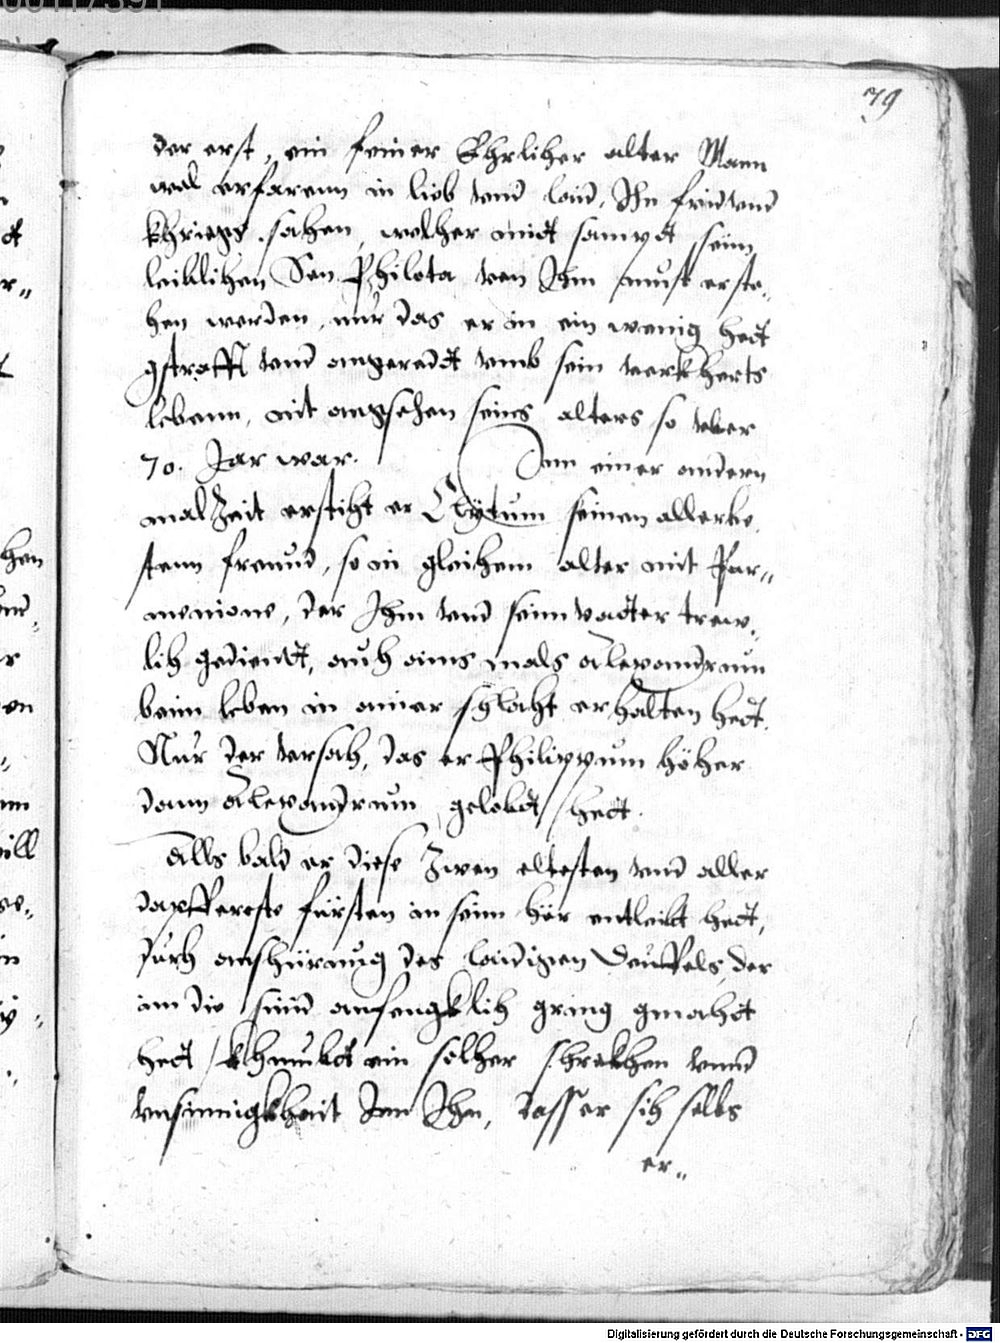 79
der erst, ein feiner Ehrlicher alter Mann
wol erfarenn in lieb vnd laid, In frid vnd
khriegs sachen, welcher midt sampdt seim
leiblichen Son Philota von Ihm must ersto„
chen werden, nur das er in ein wenig hedt
gstrafft vnd angeredt vmb sein verkherts
lebenn, nit angsehen seines alters so vber
70. Jar war. Inn einer andern
malZeit ersticht er Clytum seinen allerbe„
stenn freund, so in gleichem alter mit Par„
menione, der Ihm vnd seim vadter trew„
lich gediendt, auch ains mals Alexandrum
beim leben in ainer schlacht erhalten hedt.
Nur der vrsach, das er Philippum höher
dann Alexandrum gelobdt hedt.
Alls bald er diese Zwen eltesten vnd aller
dapfferste fürsten in seim hör entleibt hedt,
durch anschürung des laidigen Deuffels, der
im die sünd anfengklich gring gmacht
hedt, khumbdt ein solcher schrekhen vnnd
vnsinnigkhait Inn Ihn, dasser sich selbs
er„
Digitalisierung gefördert durch die Deutsche Forschungsgemeinschaft - DFG